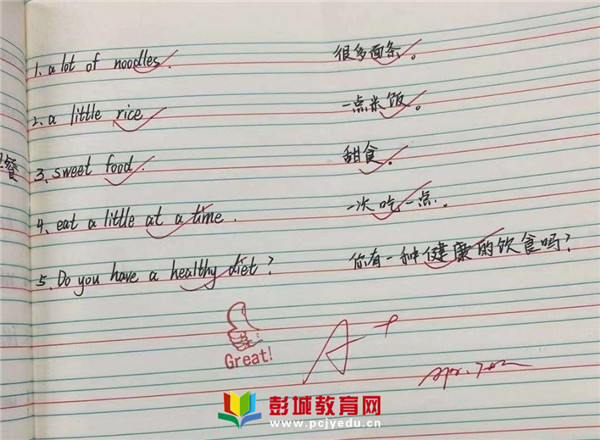 1. a lot of noodles. 很多面条。
2. a little rice. 一点米饭。
餐 3. sweet food. 甜食。
4. eat a little at a time. 一次吃一点.
5. Do you have a healthy diet? 你有一种健康的饮食吗?
Great! A+
彭城教育网
www.pcjyedu.cn